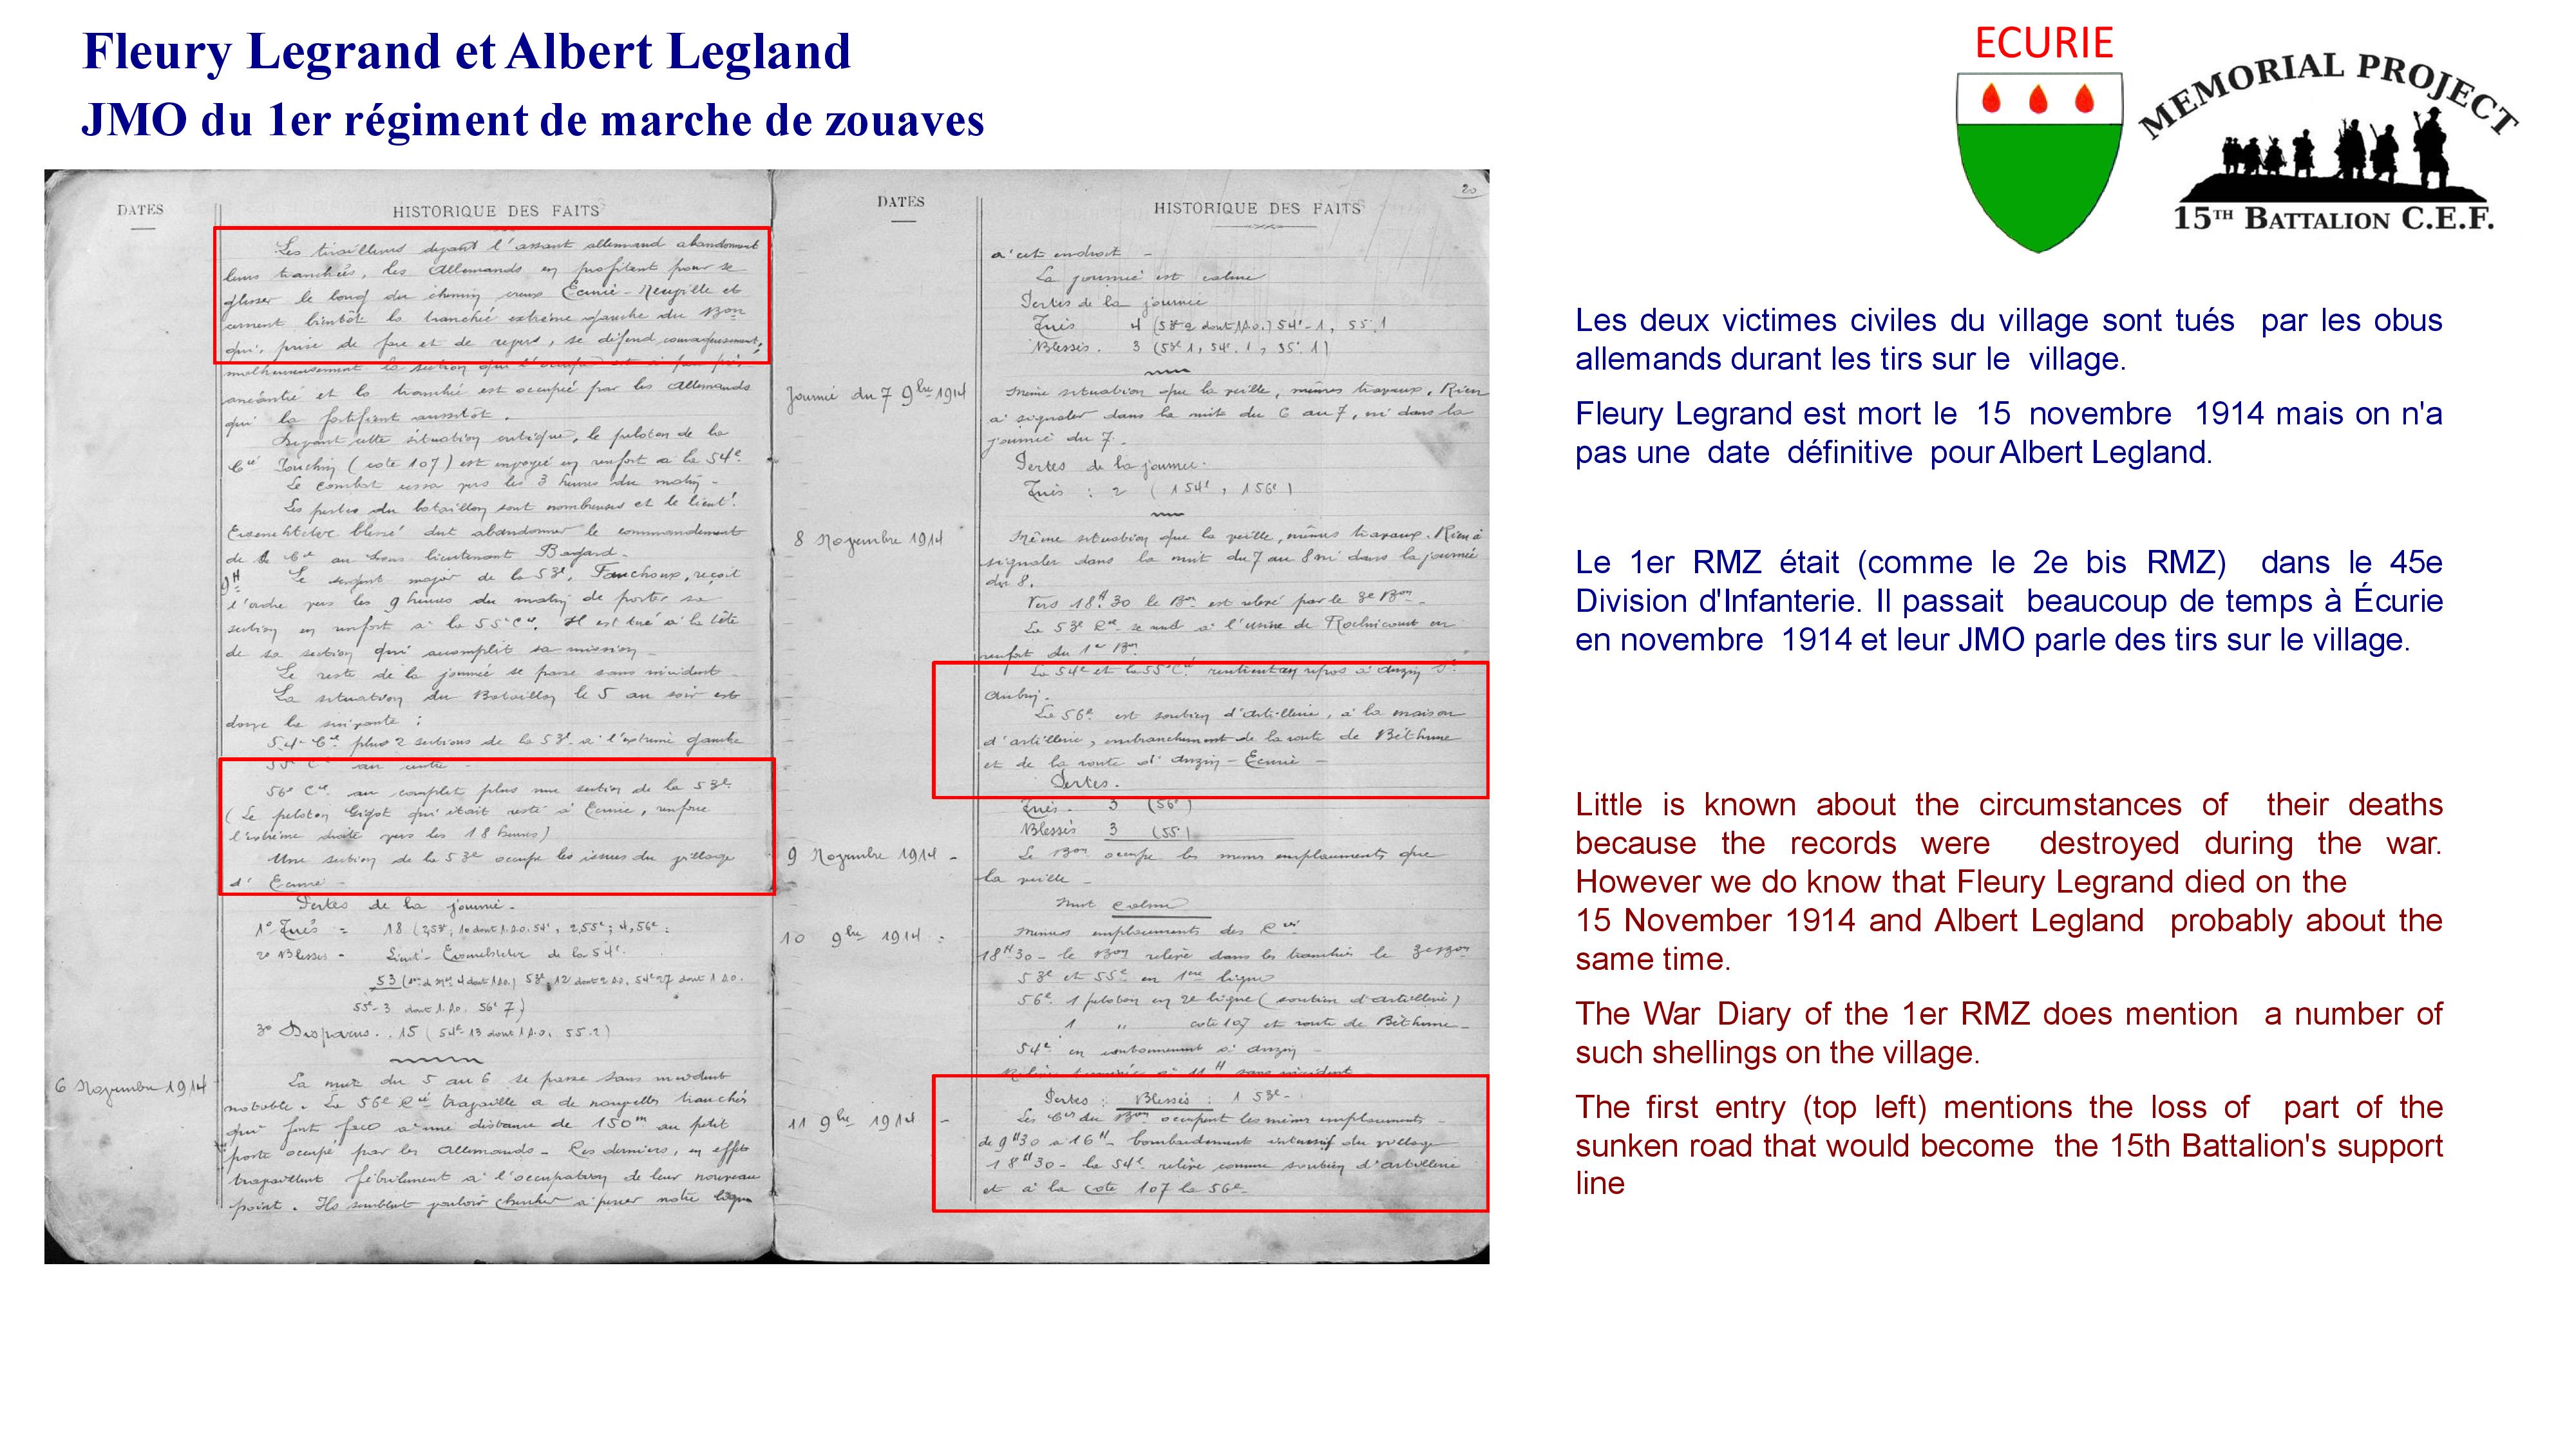 Fleury Legrand et Albert Legland
JMO du 1er régiment de marche de zouaves
ECURIE
MEMORIAL PROJECT
15TH BATTALION C.E.F.
DATES
HISTORIQUE DES FAITS
Les tirailleurs devant l'assaut allemand abandonnent
leurs tranchées, les Allemands en profitent pour se
glisser le long du chemin creux Ecurie - Neuville et
cernent bientôt la tranchée extrême gauche du Bon
qui, prise de face et de revers, se défend courageusement;
malheureusement la section qui l'occupe est
anéantie et la tranchée est occupée par les Allemands
qui la fortifient aussitôt.
Devant cette situation critique, le peloton de la
Cie (cote 107) est envoyé en renfort à la 54e
Le combat cessa vers les 3 heures du matin -
Les pertes du bataillon sont nombreuses et le lieut!
blessé dut abandonner le commandement
de la Cie au sous lieutenant
9H Le sergent major de la 53e, Fauchoux, reçoit
l'ordre vers les 9 heures du matin de porter sa
section en renfort à la 55e Cie. Il est tué à la tête
de sa section qui accomplit sa mission -
Le reste de la journée se passe sans incident -
La situation du Bataillon le 5 au soir est
donc la suivante :
54e Cie plus 2 sections de la 53e à l'extrême gauche
55e Cie au centre -
56e Cie au complet plus une section de la 53e
(Le peloton Gigot qui était resté à Ecurie, renforce
l'extrême droite vers les 18 heures)
Une section de la 53e occupe les issues du village
d' Ecurie -
Pertes de la journée -
1° Tués = 18
2° Blessés - Lieut! de la 54e
53
55e - 3 dont 1 A.O. 56e 7)
3° Disparus.. 15 (54e - 13 dont 1 A.O. 55.2)
6 Novembre 1914
La nuit du 5 au 6 se passe sans incident
notable. La 56e Cie travaille à de nouvelles tranchées
qui font face à une distance de 150m au petit
poste occupé par les Allemands - Ces derniers, en effet
travaillent fébrilement à l'occupation de leur nouveau
point. Ils semblent vouloir chercher à percer notre ligne
20
DATES
HISTORIQUE DES FAITS
à cet endroit -
La journée est calme
Pertes de la journée
Tués 4 (53e 2 dont 1 A.O.) 54e - 1, 55.1
Blessés. 3 (53e 1, 54e. 1,
Journée du 7 9bre 1914
Même situation que la veille, mêmes travaux. Rien
à signaler dans la nuit du 6 au 7, ni dans la
journée du 7.
Pertes de la journée.
Tués : 2 (1 54e, 1 56e)
8 Novembre 1914
Même situation que la veille, mêmes travaux. Rien à
signaler dans la nuit du 7 au 8 ni dans la journée
du 8.
Vers 18H30 le Bon est relevé par le 3e Bon -
La 53e Cie se rend à l'usine de Roclincourt en
renfort du 1er Bon
La 54e et la 55e Cie rentrent au repos à Anzin St
Aubin.
La 56e est soutien d'artillerie, à la maison
d'artillerie, embranchement de la route de Béthune
et de la route d'Anzin - Ecurie -
Pertes.
Tués. 3 (56e)
Blessés 3 (55)
9 Novembre 1914 -
Le Bon occupe les mêmes emplacements que
la veille -
Nuit calme
10 9bre 1914 -
Mêmes emplacements des Cies
18H30 - le Bon relève dans les tranchées le 3e Bon
53e et 55e en 1ère ligne
56e 1 peloton en 2e ligne (soutien d'artillerie)
1 " cote 107 et route de Béthune -
54e en cantonnement à Anzin -
Relève terminée à 11H sans incident -
Pertes : Blessés : 1 53e -
11 9bre 1914 -
Les Cies du Bon occupent les mêmes emplacements -
de 9H30 à 16H - bombardement intensif du village
18H30 - la 54e relève comme soutien d'artillerie
et à la cote 107 la 56e -
Les deux victimes civiles du village sont tués par les obus
allemands durant les tirs sur le village.
Fleury Legrand est mort le 15 novembre 1914 mais on n'a
pas une date définitive pour Albert Legland.
Le 1er RMZ était (comme le 2e bis RMZ) dans le 45e
Division d'Infanterie. Il passait beaucoup de temps à Écurie
en novembre 1914 et leur JMO parle des tirs sur le village.
Little is known about the circumstances of their deaths
because the records were destroyed during the war.
However we do know that Fleury Legrand died on the
15 November 1914 and Albert Legland probably about the
same time.
The War Diary of the 1er RMZ does mention a number of
such shellings on the village.
The first entry (top left) mentions the loss of part of the
sunken road that would become the 15th Battalion's support
line